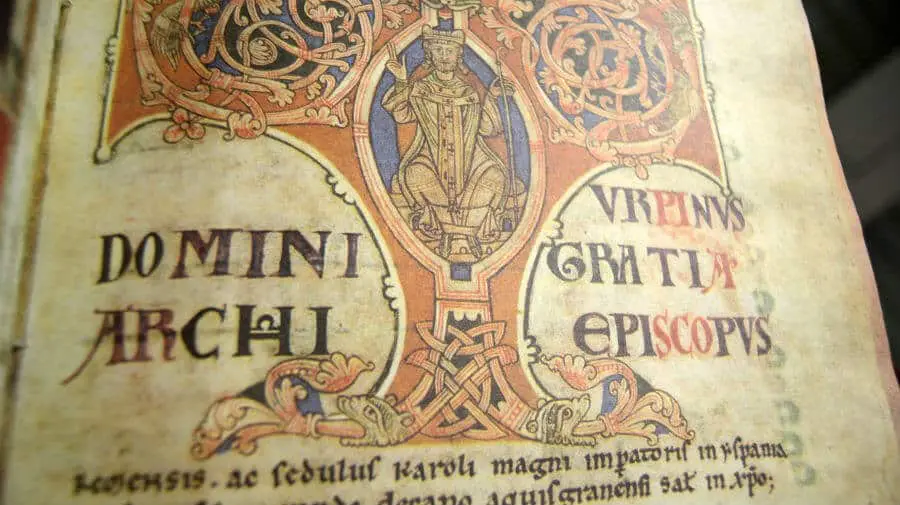 TVRPINVS
DOMINI GRATIA
ARCHI EPISCOPVS
REMENSIS. ac sedulus karoli magni imp̄atoris in yspania
decano aquisgranensi sal̄ in xp̄o;